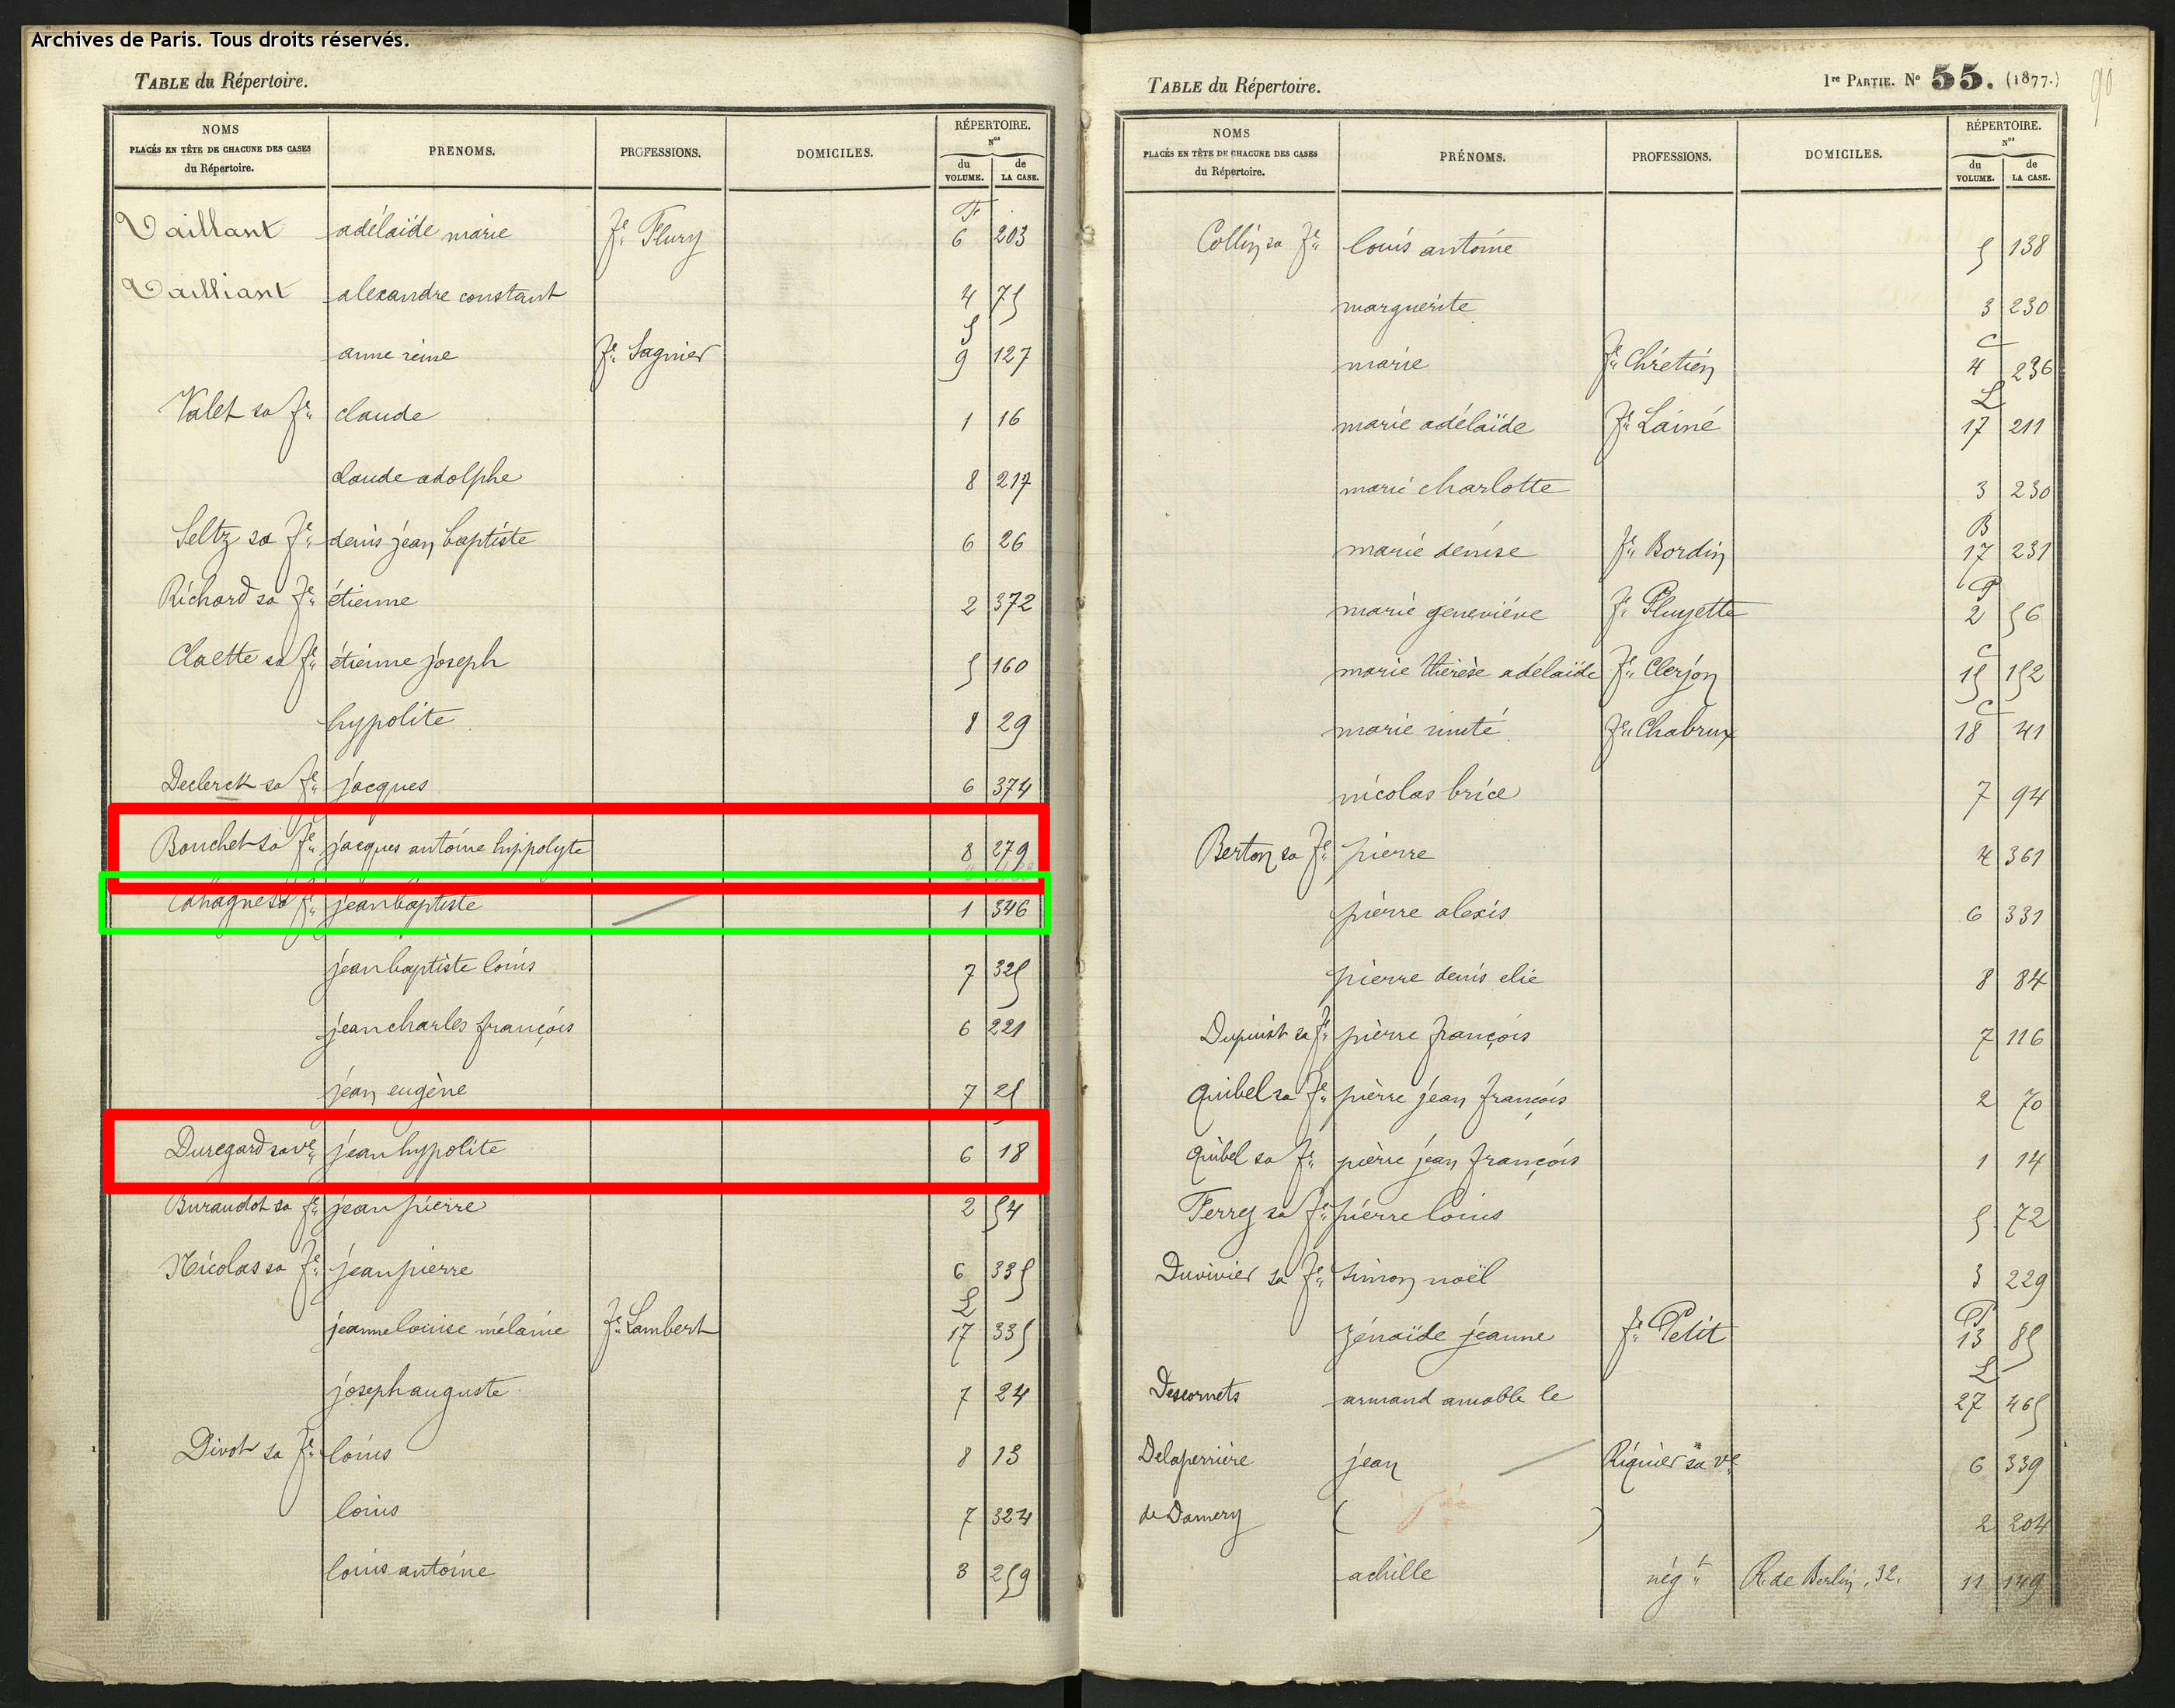 Archives de Paris. Tous droits réservés.
TABLE du Répertoire.
NOMS PLACÉS EN TÊTE DE CHACUNE DES CASES du Répertoire. PRENOMS. PROFESSIONS. DOMICILES. RÉPERTOIRE. Nos du VOLUME. de LA CASE.
Vaillant adélaïde marie fe Flury F 6 203
Vailliant alexandre constant 4 75
anne reine fe Sagnier S 9 127
Valet sa fe claude 1 16
claude adolphe 8 217
Seltz sa fe denis jean baptiste 6 26
Richard sa fe étienne 2 372
Claette sa fe étienne joseph 5 160
hypolite 8 29
Declerck sa fe jacques 6 374
Bouchet sa fe jacques antoine hippolyte 8 279
sa fe jean baptiste 1 346
jean baptiste louis 7 325
jean charles françois 6 221
jean eugène 7 25
Duregard sa ve jean hypolite 6 18
Buraudot sa fe jean pierre 2 54
Nicolas sa fe jean pierre 6 335
jeanne louise mélanie fe Lambert L 17 335
joseph auguste 7 24
Divot sa fe louis 8 13
louis 7 324
louis antoine 3 259
TABLE du Répertoire. 1re PARTIE. No 55. (1877.) 90
NOMS PLACÉS EN TÊTE DE CHACUNE DES CASES du Répertoire. PRÉNOMS. PROFESSIONS. DOMICILES. RÉPERTOIRE. Nos du VOLUME. de LA CASE.
Collin sa fe louis antoine 5 138
marguerite 3 230
marie fe Chrétien C 4 236
marie adélaïde fe Lainé L 17 211
marie charlotte 3 230
marie denise fe Bordin B 17 231
marie geneviéve fe Pluyette P 2 56
marie thérèse adélaïde fe Clerjon C 15 152
marie fe Chabrux C 18 41
nicolas brice 7 94
Berton sa fe pierre 4 361
pierre alexis 6 331
pierre denis elie 8 84
Dupuist sa fe pierre françois 7 116
Quibel sa fe pièrre jean françois 2 70
Quibel sa fe pièrre jean françois 1 14
Ferrey sa fe pierre louis 5 72
Duvivier sa fe simon noël 3 229
zénaïde jeanne fe Petit P 13 85
Descornets armand amable le L 27 465
Delaperrière jean Riquier sa ve 6 339
de Damery ( ) 2 204
achille négt R. de Berlin, 32. 11 149